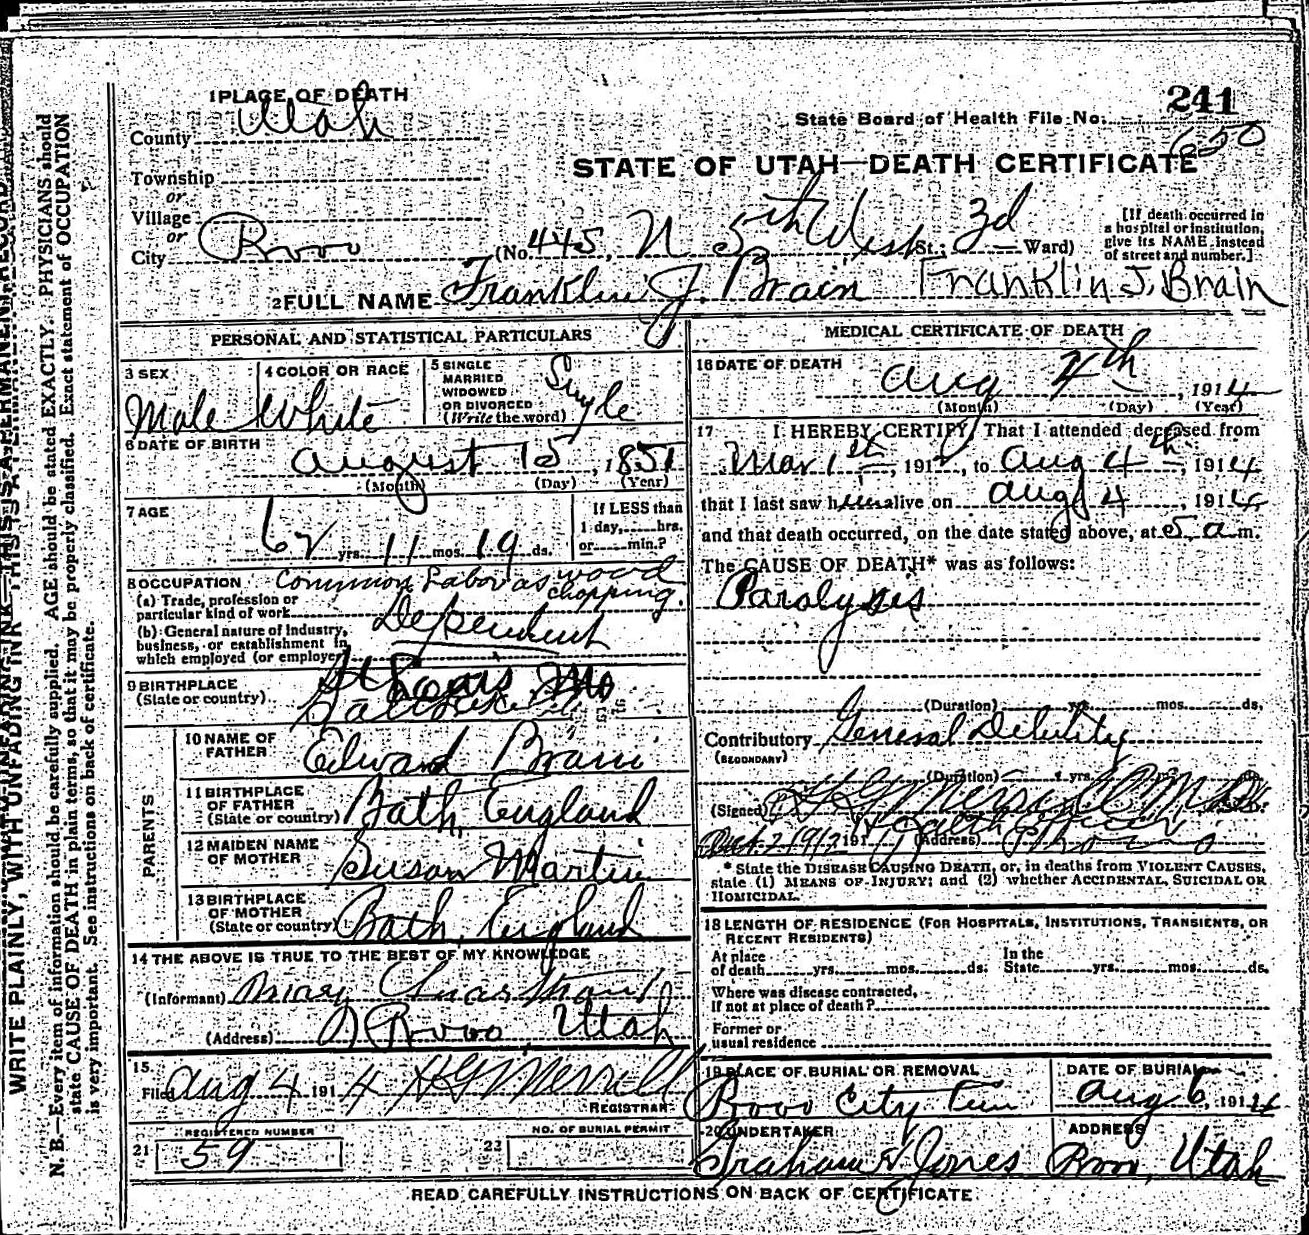 1 PLACE OF DEATH
County Utah
Township
or
Village
or
City Provo
241
State Board of Health File No. 650
STATE OF UTAH—DEATH CERTIFICATE
(No. 445, N 5th West St.; 3d Ward)
[If death occurred in
a hospital or institution,
give its NAME instead
of street and number.]
2 FULL NAME Franklin J. Brain Franklin J. Brain
PERSONAL AND STATISTICAL PARTICULARS
3 SEX
Male
4 COLOR OR RACE
White
5 SINGLE
MARRIED
WIDOWED
OR DIVORCED
(Write the word)
Single
6 DATE OF BIRTH
August 15, 1851
(Month) (Day) (Year)
7 AGE
62 yrs. 11 mos. 19 ds.
If LESS than
1 day, hrs.
or min.?
8 OCCUPATION Common Labor as wood chopping.
(a) Trade, profession or
particular kind of work Dependent
(b) General nature of industry,
business, or establishment in
which employed (or employer)
9 BIRTHPLACE
(State or country)
St Louis Mo
10 NAME OF
FATHER
Edward Brain
11 BIRTHPLACE
OF FATHER
(State or country)
Bath, England
12 MAIDEN NAME
OF MOTHER
Susan Martin
13 BIRTHPLACE
OF MOTHER
(State or country)
Bath, England
PARENTS
14 THE ABOVE IS TRUE TO THE BEST OF MY KNOWLEDGE
(Informant) Mary
(Address) Provo, Utah
15
Filed Aug 4 1914 H G Merrill
REGISTRAR
REGISTERED NUMBER
21 59
NO. OF BURIAL PERMIT
22
MEDICAL CERTIFICATE OF DEATH
16 DATE OF DEATH
Aug 4th, 1914
(Month) (Day) (Year)
17 I HEREBY CERTIFY, That I attended deceased from
Mar 1st, 191, to Aug 4th, 1914
that I last saw him alive on Aug 4, 1914
and that death occurred, on the date stated above, at 5 a m.
The CAUSE OF DEATH* was as follows:
Paralysis
(Duration) yrs. mos. ds.
Contributory General Debility
(SECONDARY)
(Duration) yrs. ds.
(Signed) H G Merrill M D
191 (Address) Health Officer Provo
* State the DISEASE CAUSING DEATH, or, in deaths from VIOLENT CAUSES,
state (1) MEANS OF INJURY; and (2) whether ACCIDENTAL, SUICIDAL OR
HOMICIDAL.
18 LENGTH OF RESIDENCE (FOR HOSPITALS, INSTITUTIONS, TRANSIENTS, OR
RECENT RESIDENTS)
At place
of death yrs. mos. ds.
In the
State yrs. mos. ds.
Where was disease contracted,
if not at place of death?
Former or
usual residence
19 PLACE OF BURIAL OR REMOVAL
Provo City Cem
DATE OF BURIAL
Aug 6, 1914
20 UNDERTAKER
Graham & Jones
ADDRESS
Provo, Utah
READ CAREFULLY INSTRUCTIONS ON BACK OF CERTIFICATE
WRITE PLAINLY, WITH UNFADING INK—THIS IS A PERMANENT RECORD
N. B.—Every item of information should be carefully supplied. AGE should be stated EXACTLY. PHYSICIANS should
state CAUSE OF DEATH in plain terms, so that it may be properly classified. Exact statement of OCCUPATION
is very important. See instructions on back of certificate.